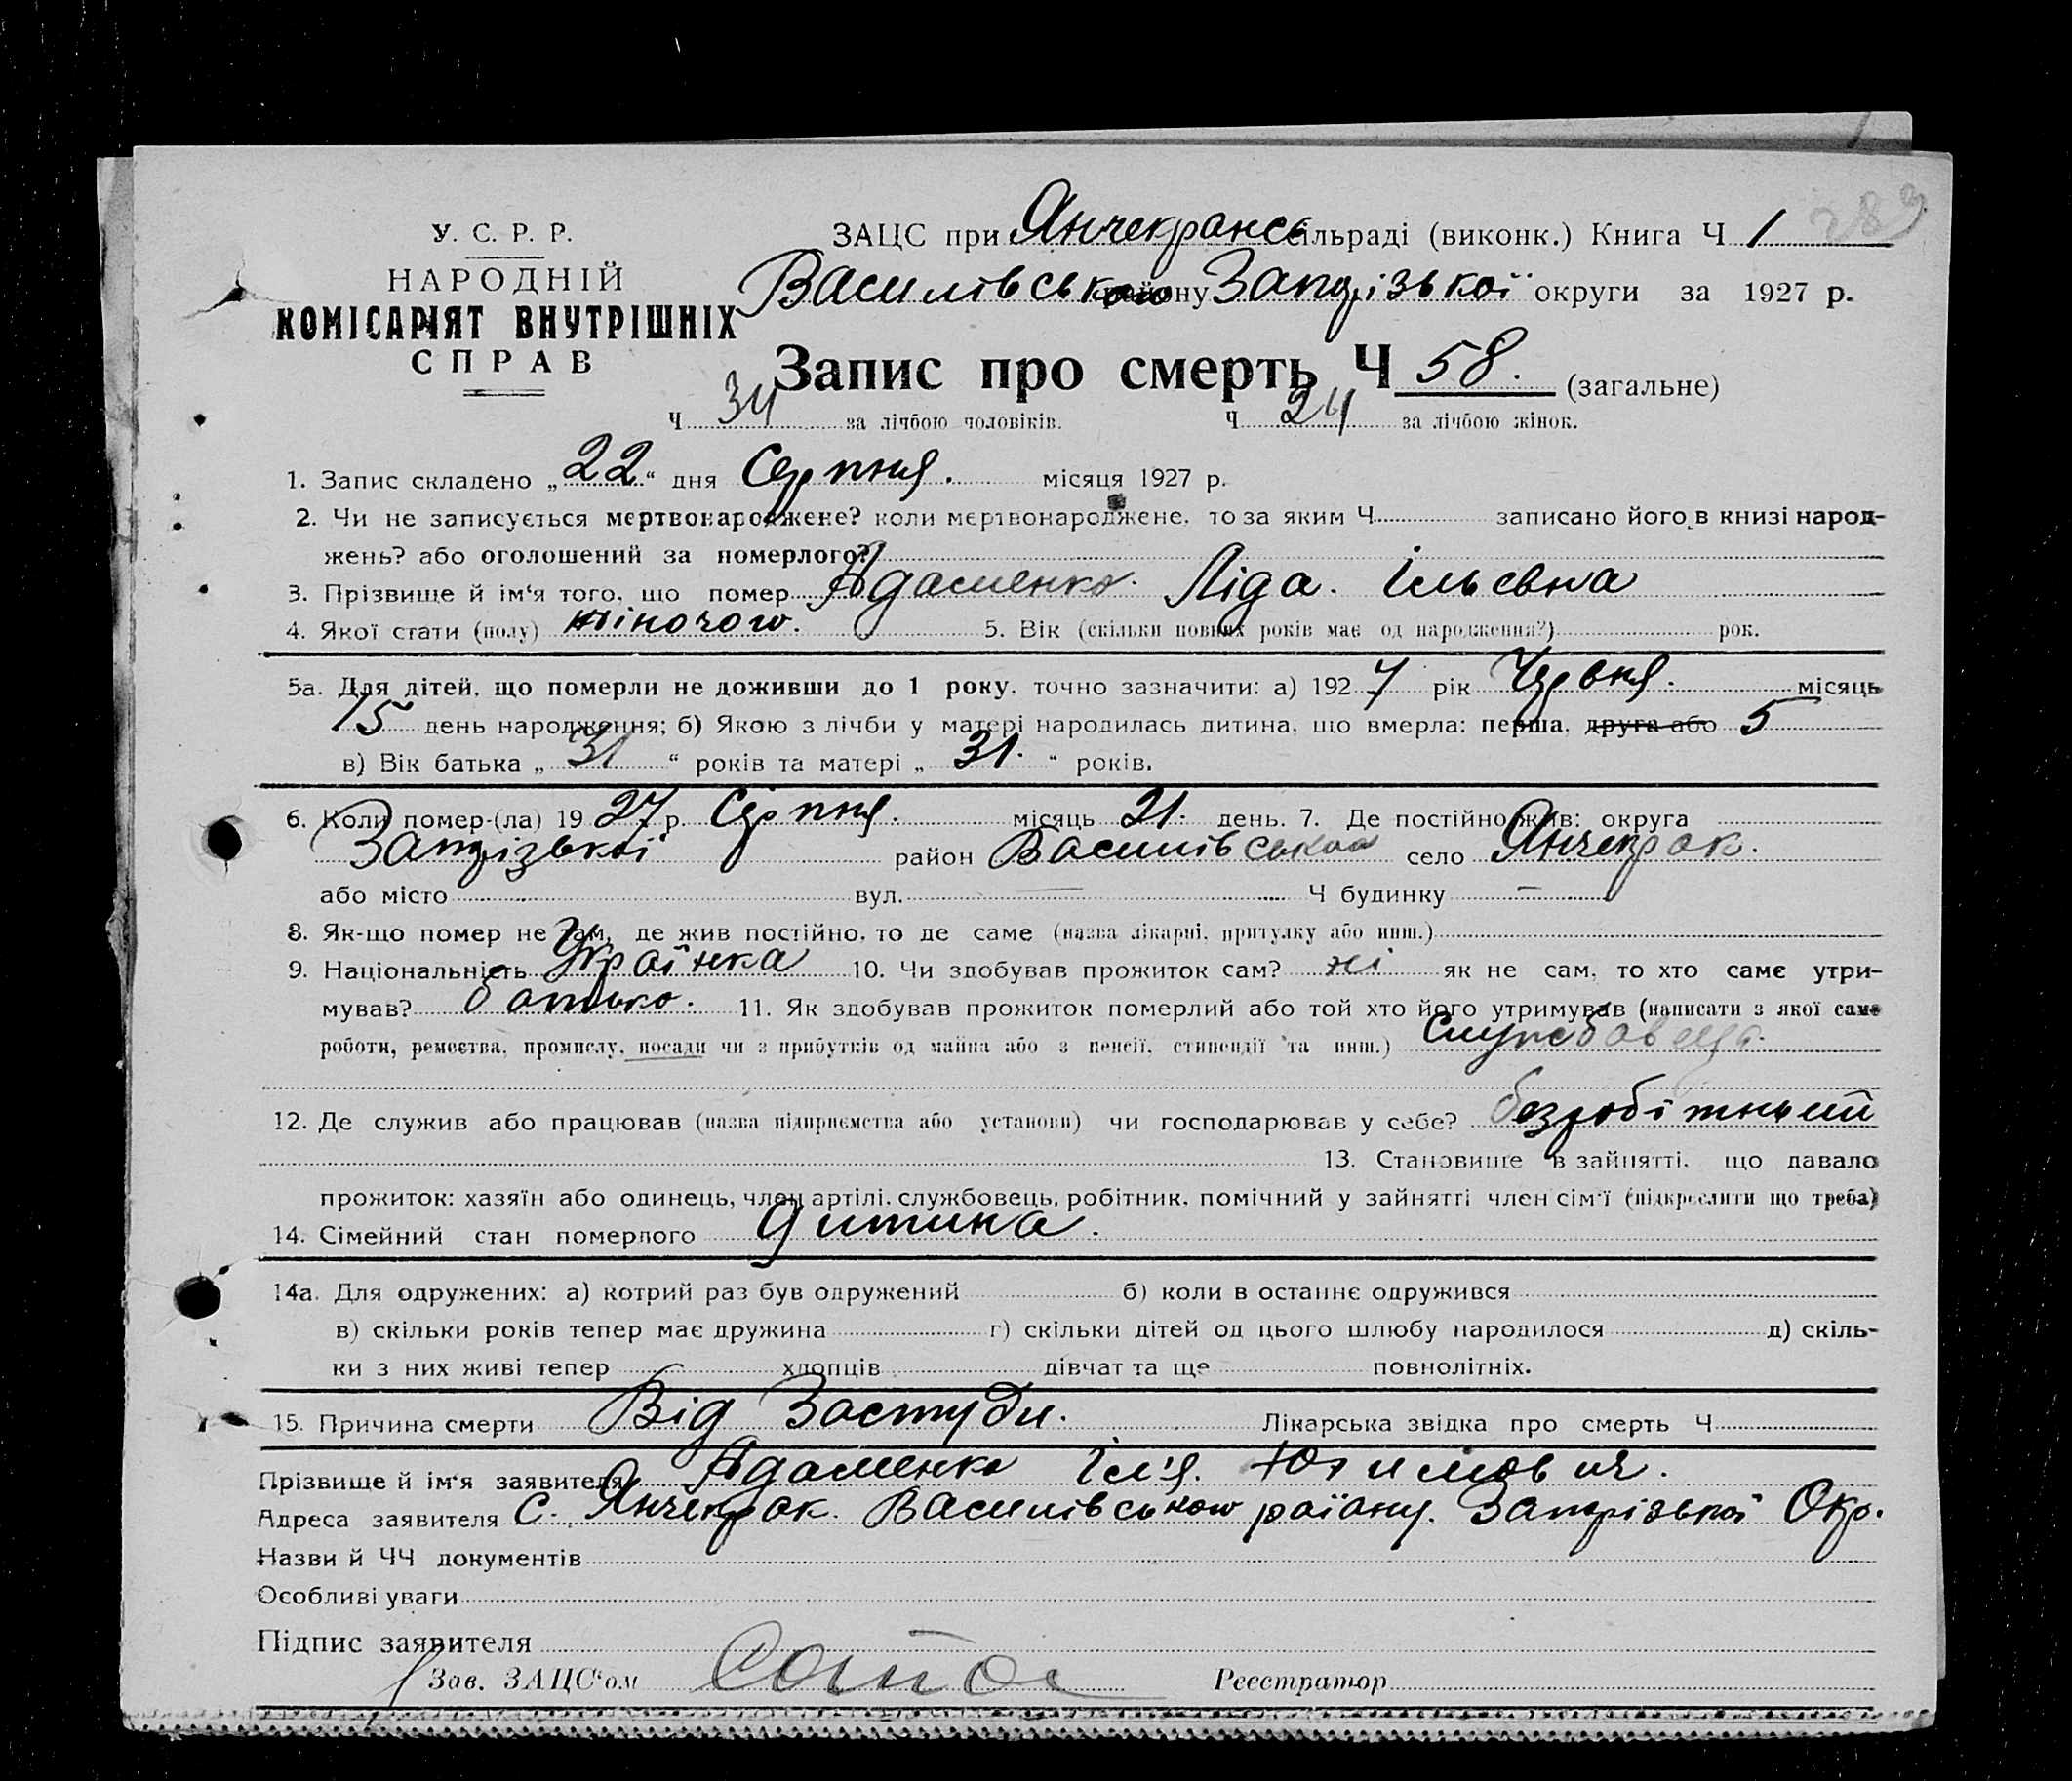 У. С. Р. Р.
НАРОДНІЙ
КОМІСАРІЯТ ВНУТРІШНІХ
СПРАВ
ЗАЦС при Янчекранс сільраді (виконк.) Книга Ч 1
Василівського району Запорізької округи за 1927 р.
Запис про смерть Ч 58. (загальне)
Ч 34 за лічбою чоловіків. Ч 24 за лічбою жінок.
1. Запис складено „22“ дня Серпня. місяця 1927 р.
2. Чи не записується мертвонароджене? коли мертвонароджене, то за яким Ч записано його в книзі народ-
жень? або оголошений за померлого?
3. Прізвище й ім'я того, що помер Адаменко. Ліда. Ільєвна
4. Якої стати (полу) жіночого. 5. Вік (скільки повних років має од народження?) рок.
5а. Для дітей, що померли не доживши до 1 року, точно зазначити: а) 1927 рік Червня. місяць
15 день народження; б) Якою з лічби у матері народилась дитина, що вмерла: перша, друга або 5
в) Вік батька „31“ років та матері „31.“ років.
6. Коли помер-(ла) 1927 р. Серпня. місяць 21. день. 7. Де постійно жив: округа
Запорізької район Василівського село Янчекрак.
або місто вул. — Ч будинку —
8. Як-що помер не там, де жив постійно, то де саме (назва лікарні, притулку або инш.)
9. Національність Українка 10. Чи здобував прожиток сам? ні як не сам, то хто саме утри-
мував? батько. 11. Як здобував прожиток померлий або той хто його утримував (написати з якої саме
роботи, ремества, промислу, посади чи з прибутків од майна або з пенсії, стипендії та инш.) службовець.
12. Де служив або працював (назва підприємства або установи) чи господарював у себе? безробітный
13. Становище в зайнятті, що давало
прожиток: хазяїн або одинець, член артілі, службовець, робітник, помічний у зайнятті член сім'ї (підкреслити що треба)
14. Сімейний стан померлого дитина.
14а. Для одружених: а) котрий раз був одружений б) коли в останнє одружився
в) скільки років тепер має дружина г) скільки дітей од цього шлюбу народилося д) скіль-
ки з них живі тепер хлопців дівчат та ще повнолітніх.
15. Причина смерти Від Застуди. Лікарська звідка про смерть Ч
Прізвище й ім'я заявителя Адаменко Ілля. Юхимович.
Адреса заявителя с. Янчекрак. Василівського раіону. Запорізької Окр.
Назви й ЧЧ документів
Особливі уваги
Підпис заявителя
Зав. ЗАЦС'ом
Реєстратор